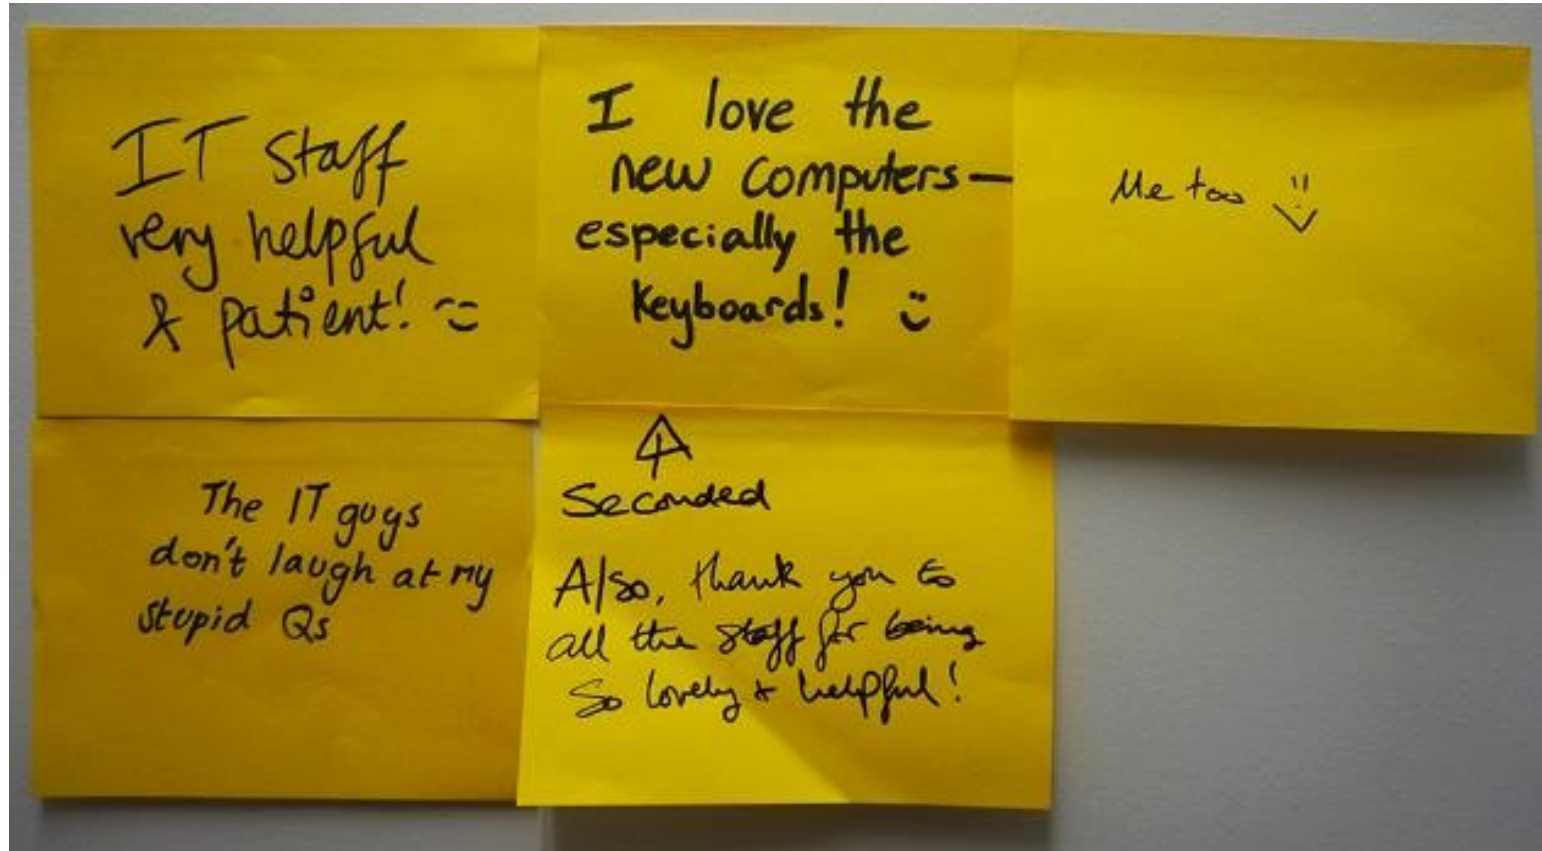 IT Staff
very helpful
& patient! :)
I love the
new computers—
especially the
keyboards! :)
Me too :)
The IT guys
don't laugh at my
stupid Qs
Seconded
Also, thank you to
all the staff for being
so lovely & helpful!